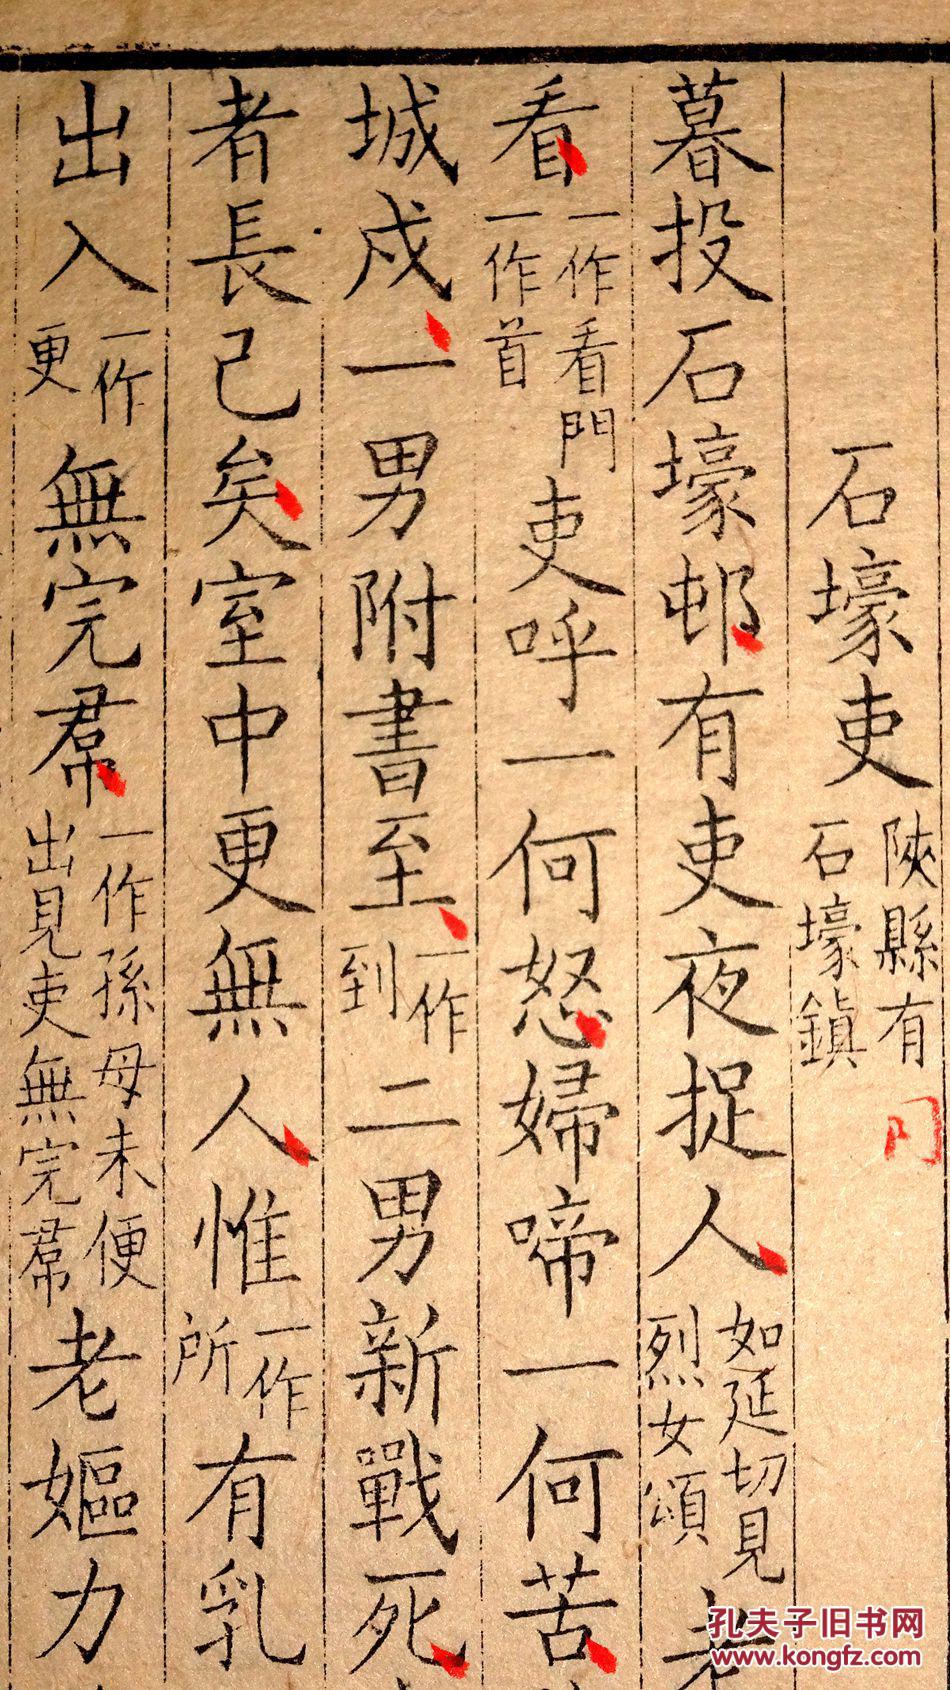 石壕吏 陝縣有石壕鎮
暮投石壕邨有吏夜捉人 如延切見烈女頌 老
看 一作看門一作首 吏呼一何怒婦啼一何苦
城戍一男附書至 一作到 二男新戰死
者長已矣室中更無人惟 一作所 有乳
出入 一作更 無完帬 一作孫母未便出見吏無完帬 老嫗力
孔夫子旧书网
www.kongfz.com